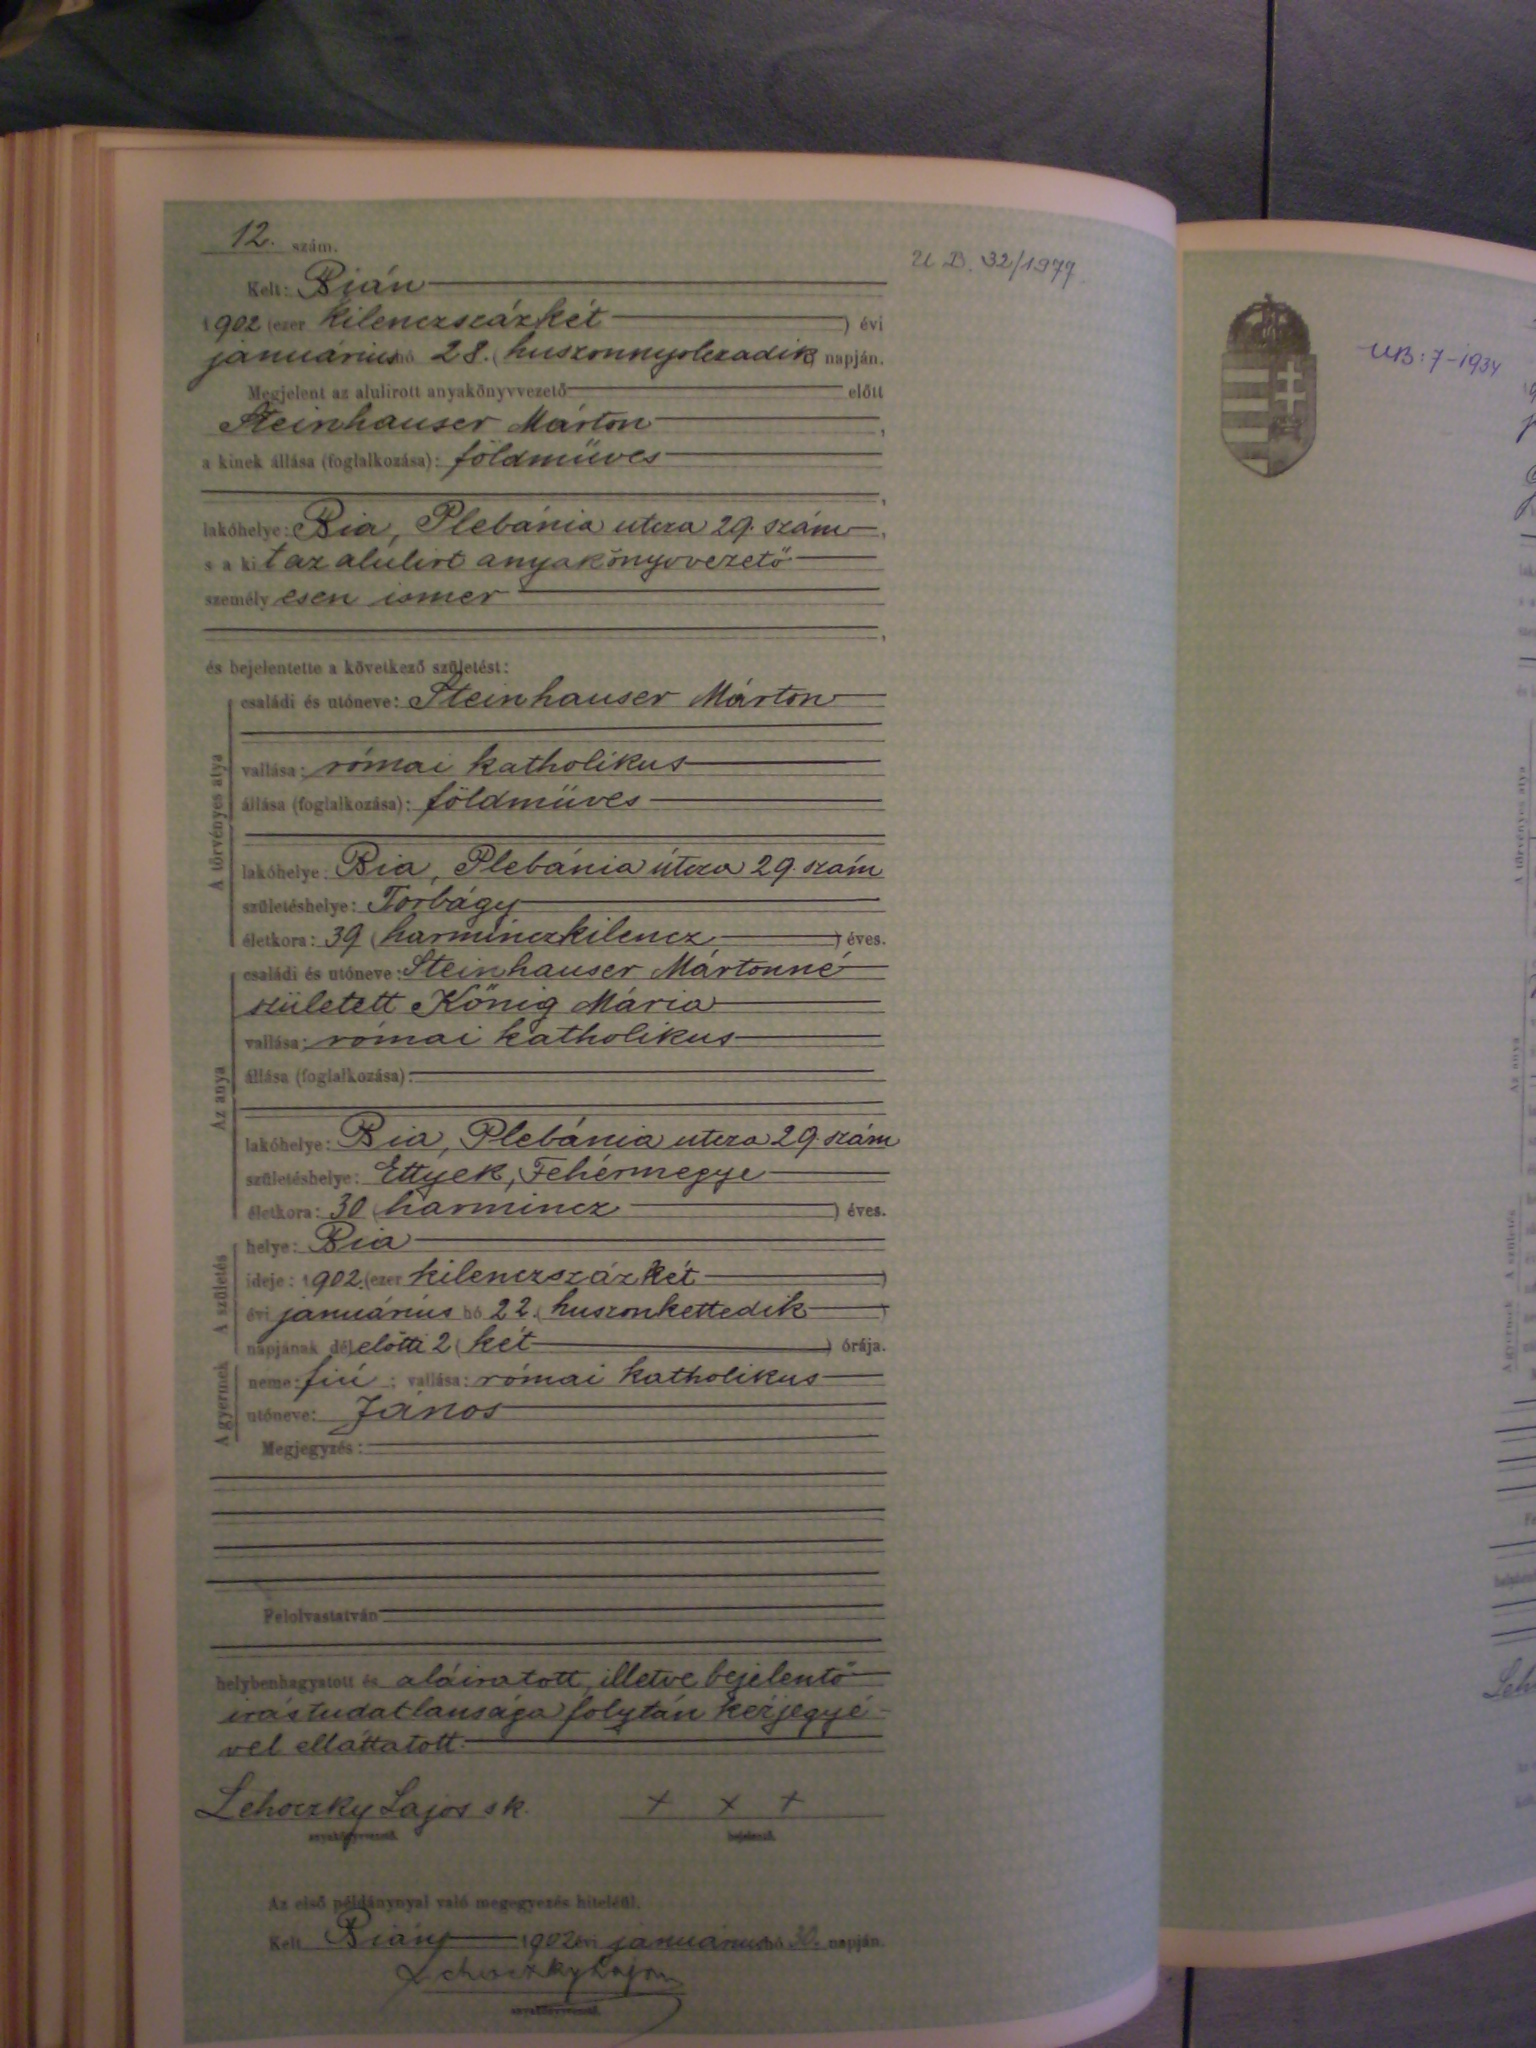 12. szám.
U B. 32/1977.
Kelt: Bián
1902 (ezer kilenczszázkét) évi
január­ius hó 28. (huszonnyolczadik) napján.
Megjelent az alulirott anyakönyvvezető előtt
Steinhauser Márton,
a kinek állása (foglalkozása): földmüves
,
lakóhelye: Bia, Plebánia utcza 29. szám,
s a kit az alulirt anyakönyvvezető
személyesen ismer
,
és bejelentette a következő születést:
A törvényes atya
családi és utóneve: Steinhauser Márton
vallása: római katholikus
állása (foglalkozása): földmüves
lakóhelye: Bia, Plebánia útcza 29. szám
születéshelye: Torbágy
életkora: 39 (harminczkilencz) éves.
Az anya
családi és utóneve: Steinhauser Mártonné
született Kőnig Mária
vallása: római katholikus
állása (foglalkozása):
lakóhelye: Bia, Plebánia utcza 29. szám
születéshelye: Ettyek, Fehérmegye
életkora: 30 (harmincz) éves.
A születés
helye: Bia
ideje: 1902. (ezer kilenczszázkét)
évi január­ius hó 22. (huszonkettedik)
napjának délelőtti 2 (két) órája.
A gyermek
neme: fiú; vallása: római katholikus
utóneve: János
Megjegyzés:
Felolvastatván
helybenhagyatott és aláiratott, illetve bejelentő
irástudatlansága folytán kézjegyé-
vel elláttatott.
Lehoczky Lajos sk. + x +
anyakönyvvezető. bejelentő.
Az első példánynyal való megegyezés hiteléül.
Kelt Bián, 1902 évi január­ius hó 30. napján.
Lehoczky Lajos
anyakönyvvezető.
UB: 7-1934